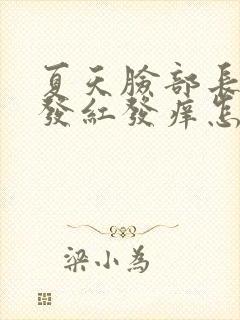 夏天臉部長
發紅發癢怎
梁小為